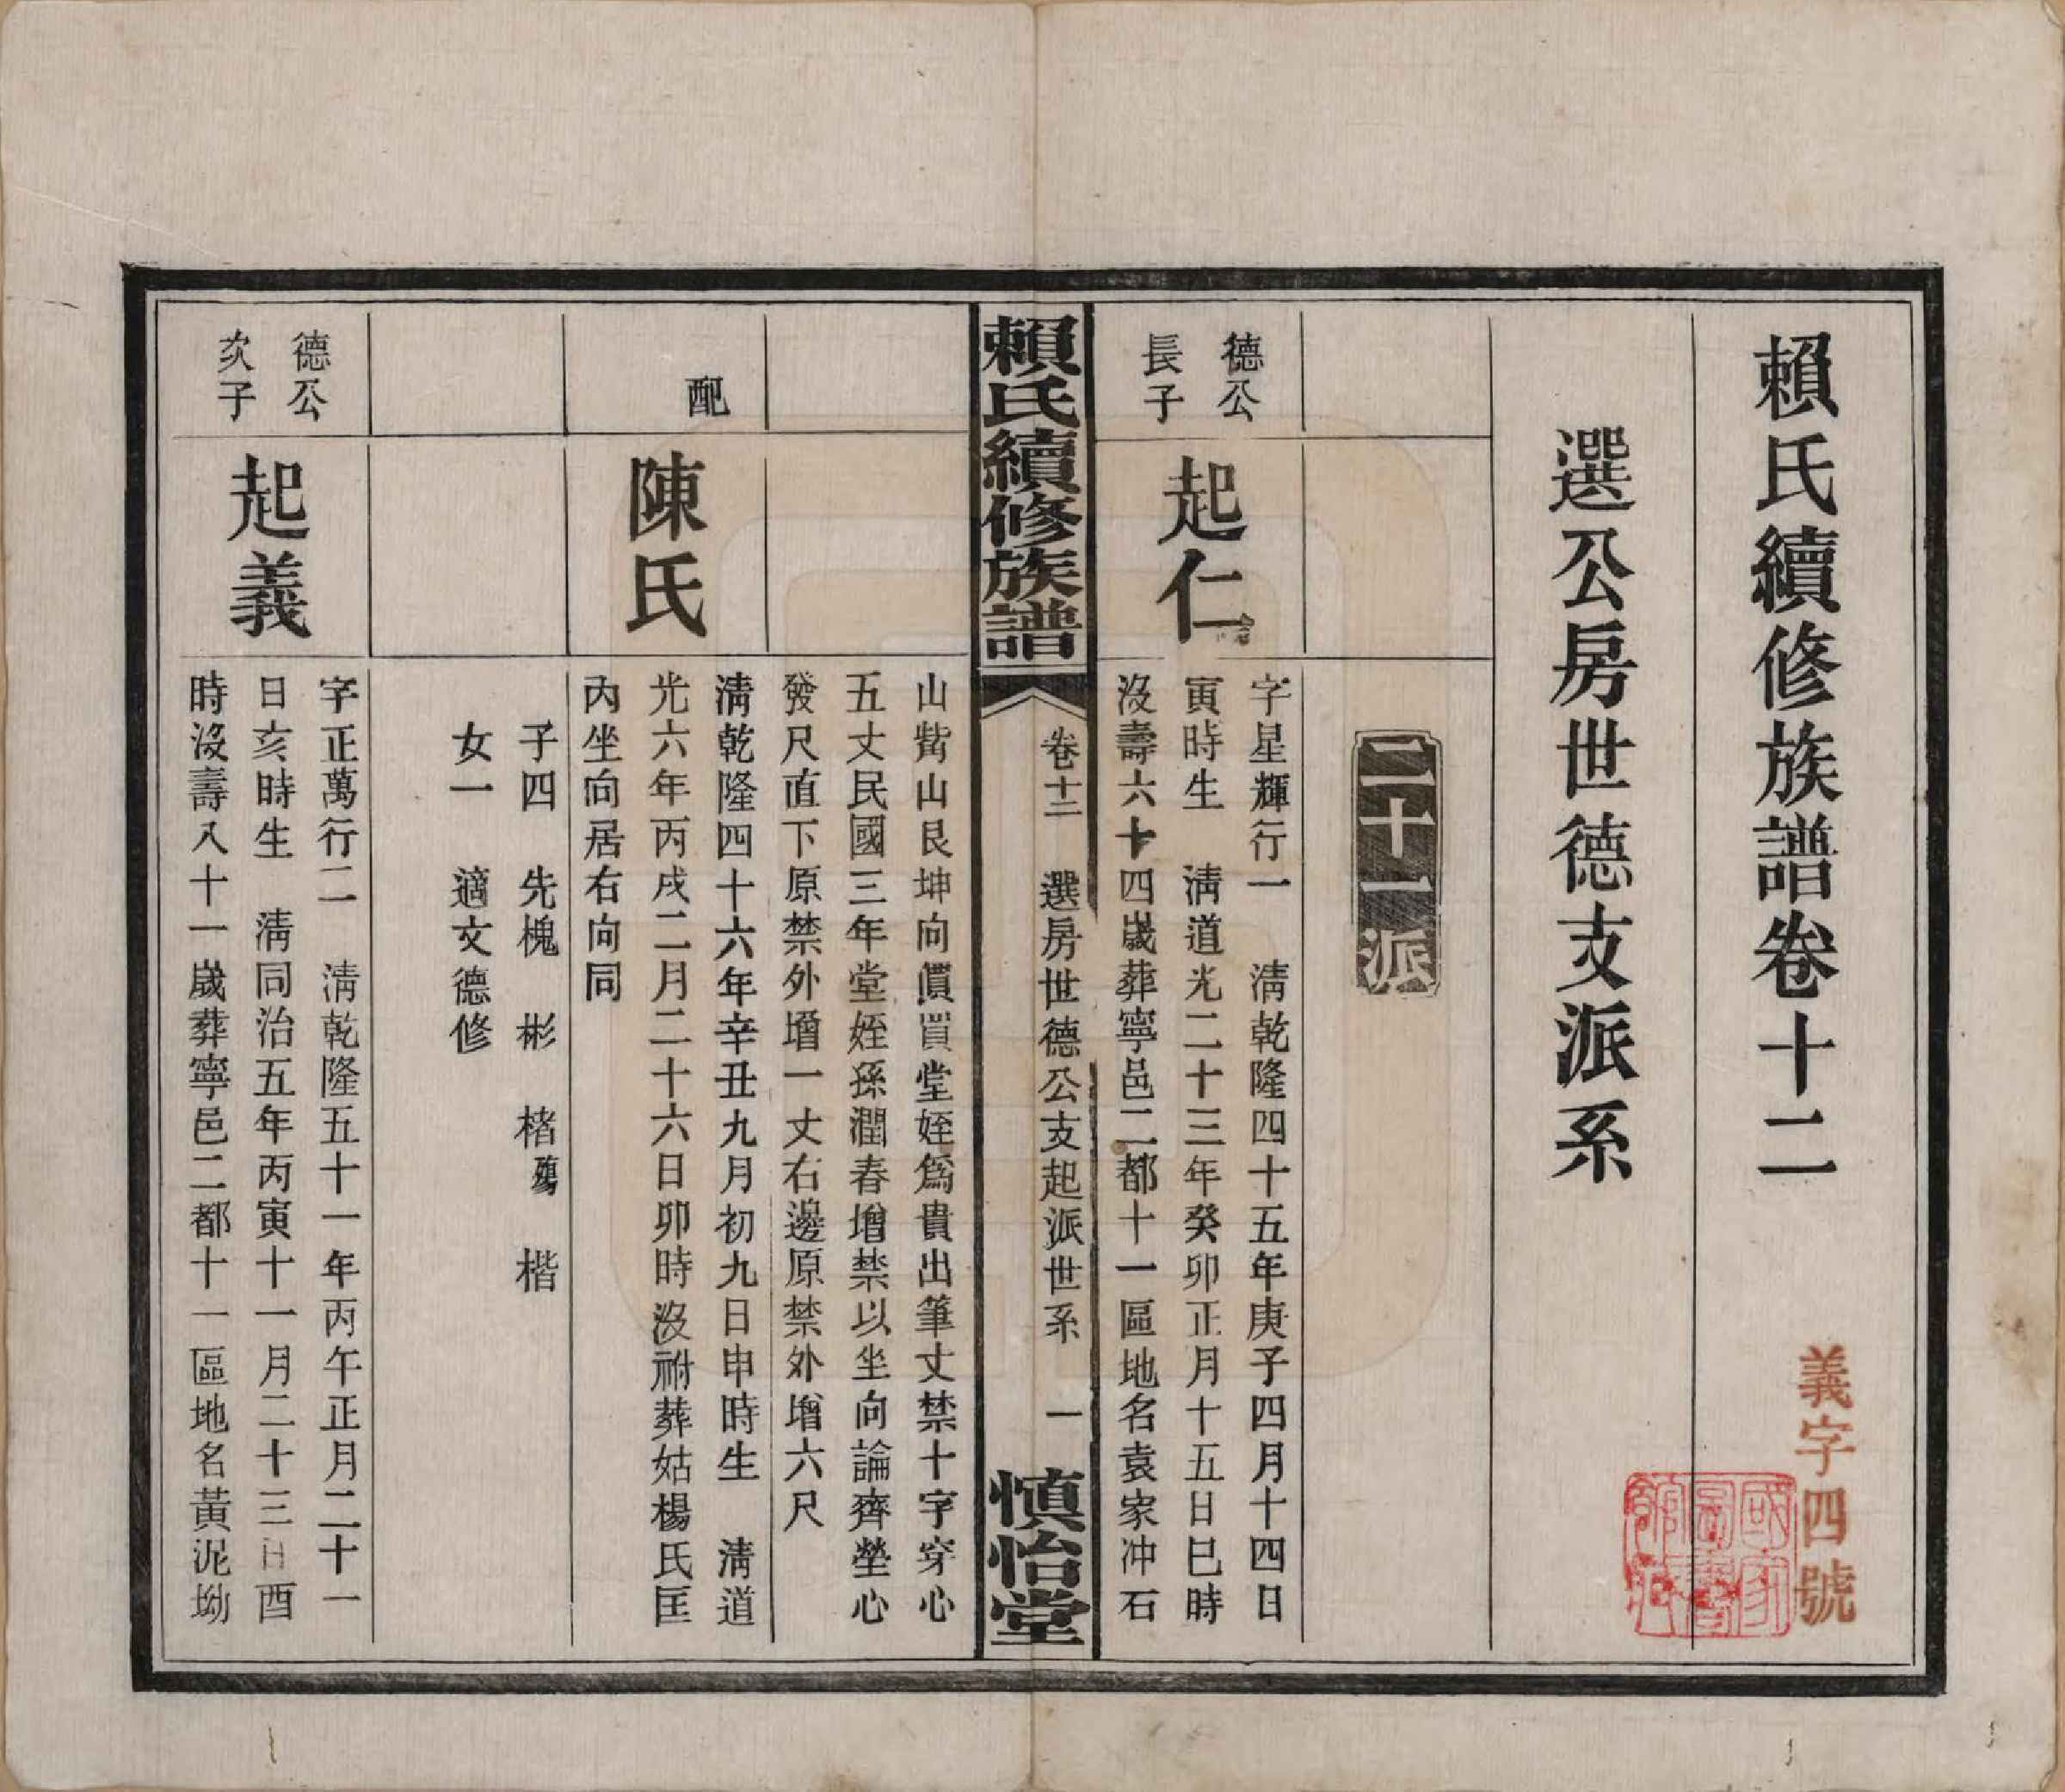 賴氏續修族譜卷十二
義字四號
選公房世德支派系
二十一派
德公
長子
起仁
字星輝行一 清乾隆四十五年庚子四月十四日
寅時生 清道光二十三年癸卯正月十五日巳時
沒壽六十四歲葬寧邑二都十一區地名袁家冲石
賴氏續修族譜
卷十二 選房世德公支起派世系 一
慎怡堂
山嘴山艮坤向價買堂姪為貴出筆丈禁十字穿心
五丈民國三年堂姪孫潤春增禁以坐向論齊塋心
發尺直下原禁外增一丈右邊原禁外增六尺
配
陳氏
清乾隆四十六年辛丑九月初九日申時生 清道
光六年丙戌二月二十六日卯時沒祔葬姑楊氏匡
內坐向居右向同
子四 先槐 彬 楮殤 楷
女一 適文德修
德公
次子
起義
字正萬行二 清乾隆五十一年丙午正月二十一
日亥時生 清同治五年丙寅十一月二十三日酉
時沒壽八十一歲葬寧邑二都十一區地名黃泥坳